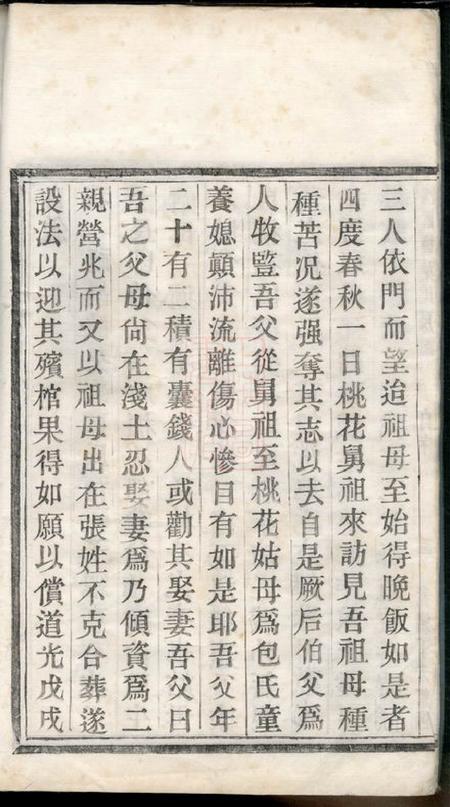 三人依門而望迨祖母至始得晚飯如是者
四度春秋一日桃花舅祖來訪見吾祖母種
種苦况遂强奪其志以去自是厥后伯父爲
人牧豎吾父從舅祖至桃花姑母爲包氏童
養媳顛沛流離傷心慘目有如是耶吾父年
二十有二積有囊錢人或勸其娶妻吾父曰
吾之父母尙在淺土忍娶妻爲乃傾資爲二
親營兆而又以祖母出在張姓不克合葬遂
設法以迎其殯棺果得如願以償道光戊戌